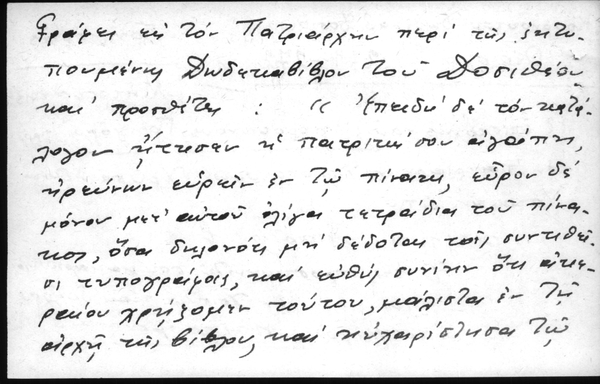 Γράφει εἰς τόν Πατριάρχην περί τῆς ἐκτυ-
πουμένης Δωδεκαβίβλου τοῦ Δοσιθέου
καί προσθέτει : « Ἐπειδή δέ τόν κατά-
λογον ἤτησεν ἡ πατρική σου ἀγάπη,
ἠρεύνων εὑρεῖν ἐν τῷ πίνακι, εὗρον δέ
μόνον μετ' αὐτοῦ ὀλίγα τετράδια τοῦ πίνα-
κος, ὅσα δηλονότι μή δέδοται τοῖς συντιθεῖ-
σι τυπογράφοις, καί εὐθύς συνῆκα ὅτι
ραίου χρῄζομεν τούτου, μάλιστα ἐν τῇ
ἀρχῇ τῆς βίβλου, καί ηὐχαρίστησα τῷ